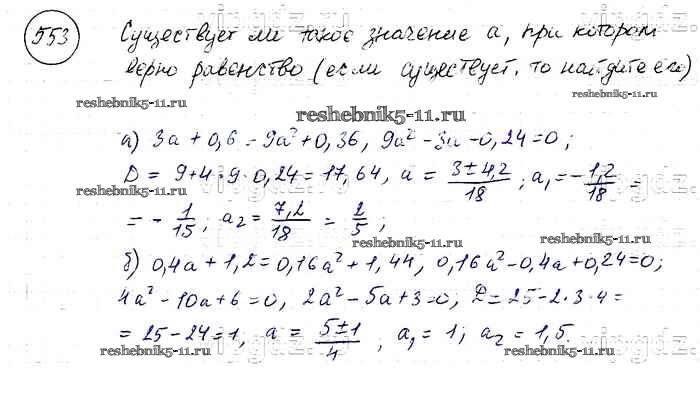 553 Существует ли такое значение a, при котором
верно равенство (если существует, то найдите его)
reshebnik5-11.ru reshebnik5-11.ru
reshebnik5-11.ru
а) 3a + 0,6 = 9a² + 0,36, 9a² - 3a - 0,24 = 0;
D = 9 + 4 · 9 · 0,24 = 17,64, a = (3 ± 4,2)/18; a₁ = - 1,2/18 =
reshebnik5-11.ru reshebnik5-11.ru
= - 1/15; a₂ = 7,2/18 = 2/5;
reshebnik5-11.ru reshebnik5-11.ru
б) 0,4a + 1,2 = 0,16a² + 1,44, 0,16a² - 0,4a + 0,24 = 0;
4a² - 10a + 6 = 0, 2a² - 5a + 3 = 0, D = 25 - 2 · 3 · 4 =
= 25 - 24 = 1, a = (5 ± 1)/4, a₁ = 1; a₂ = 1,5.
reshebnik5-11.ru reshebnik5-11.ru reshebnik5-11.ru